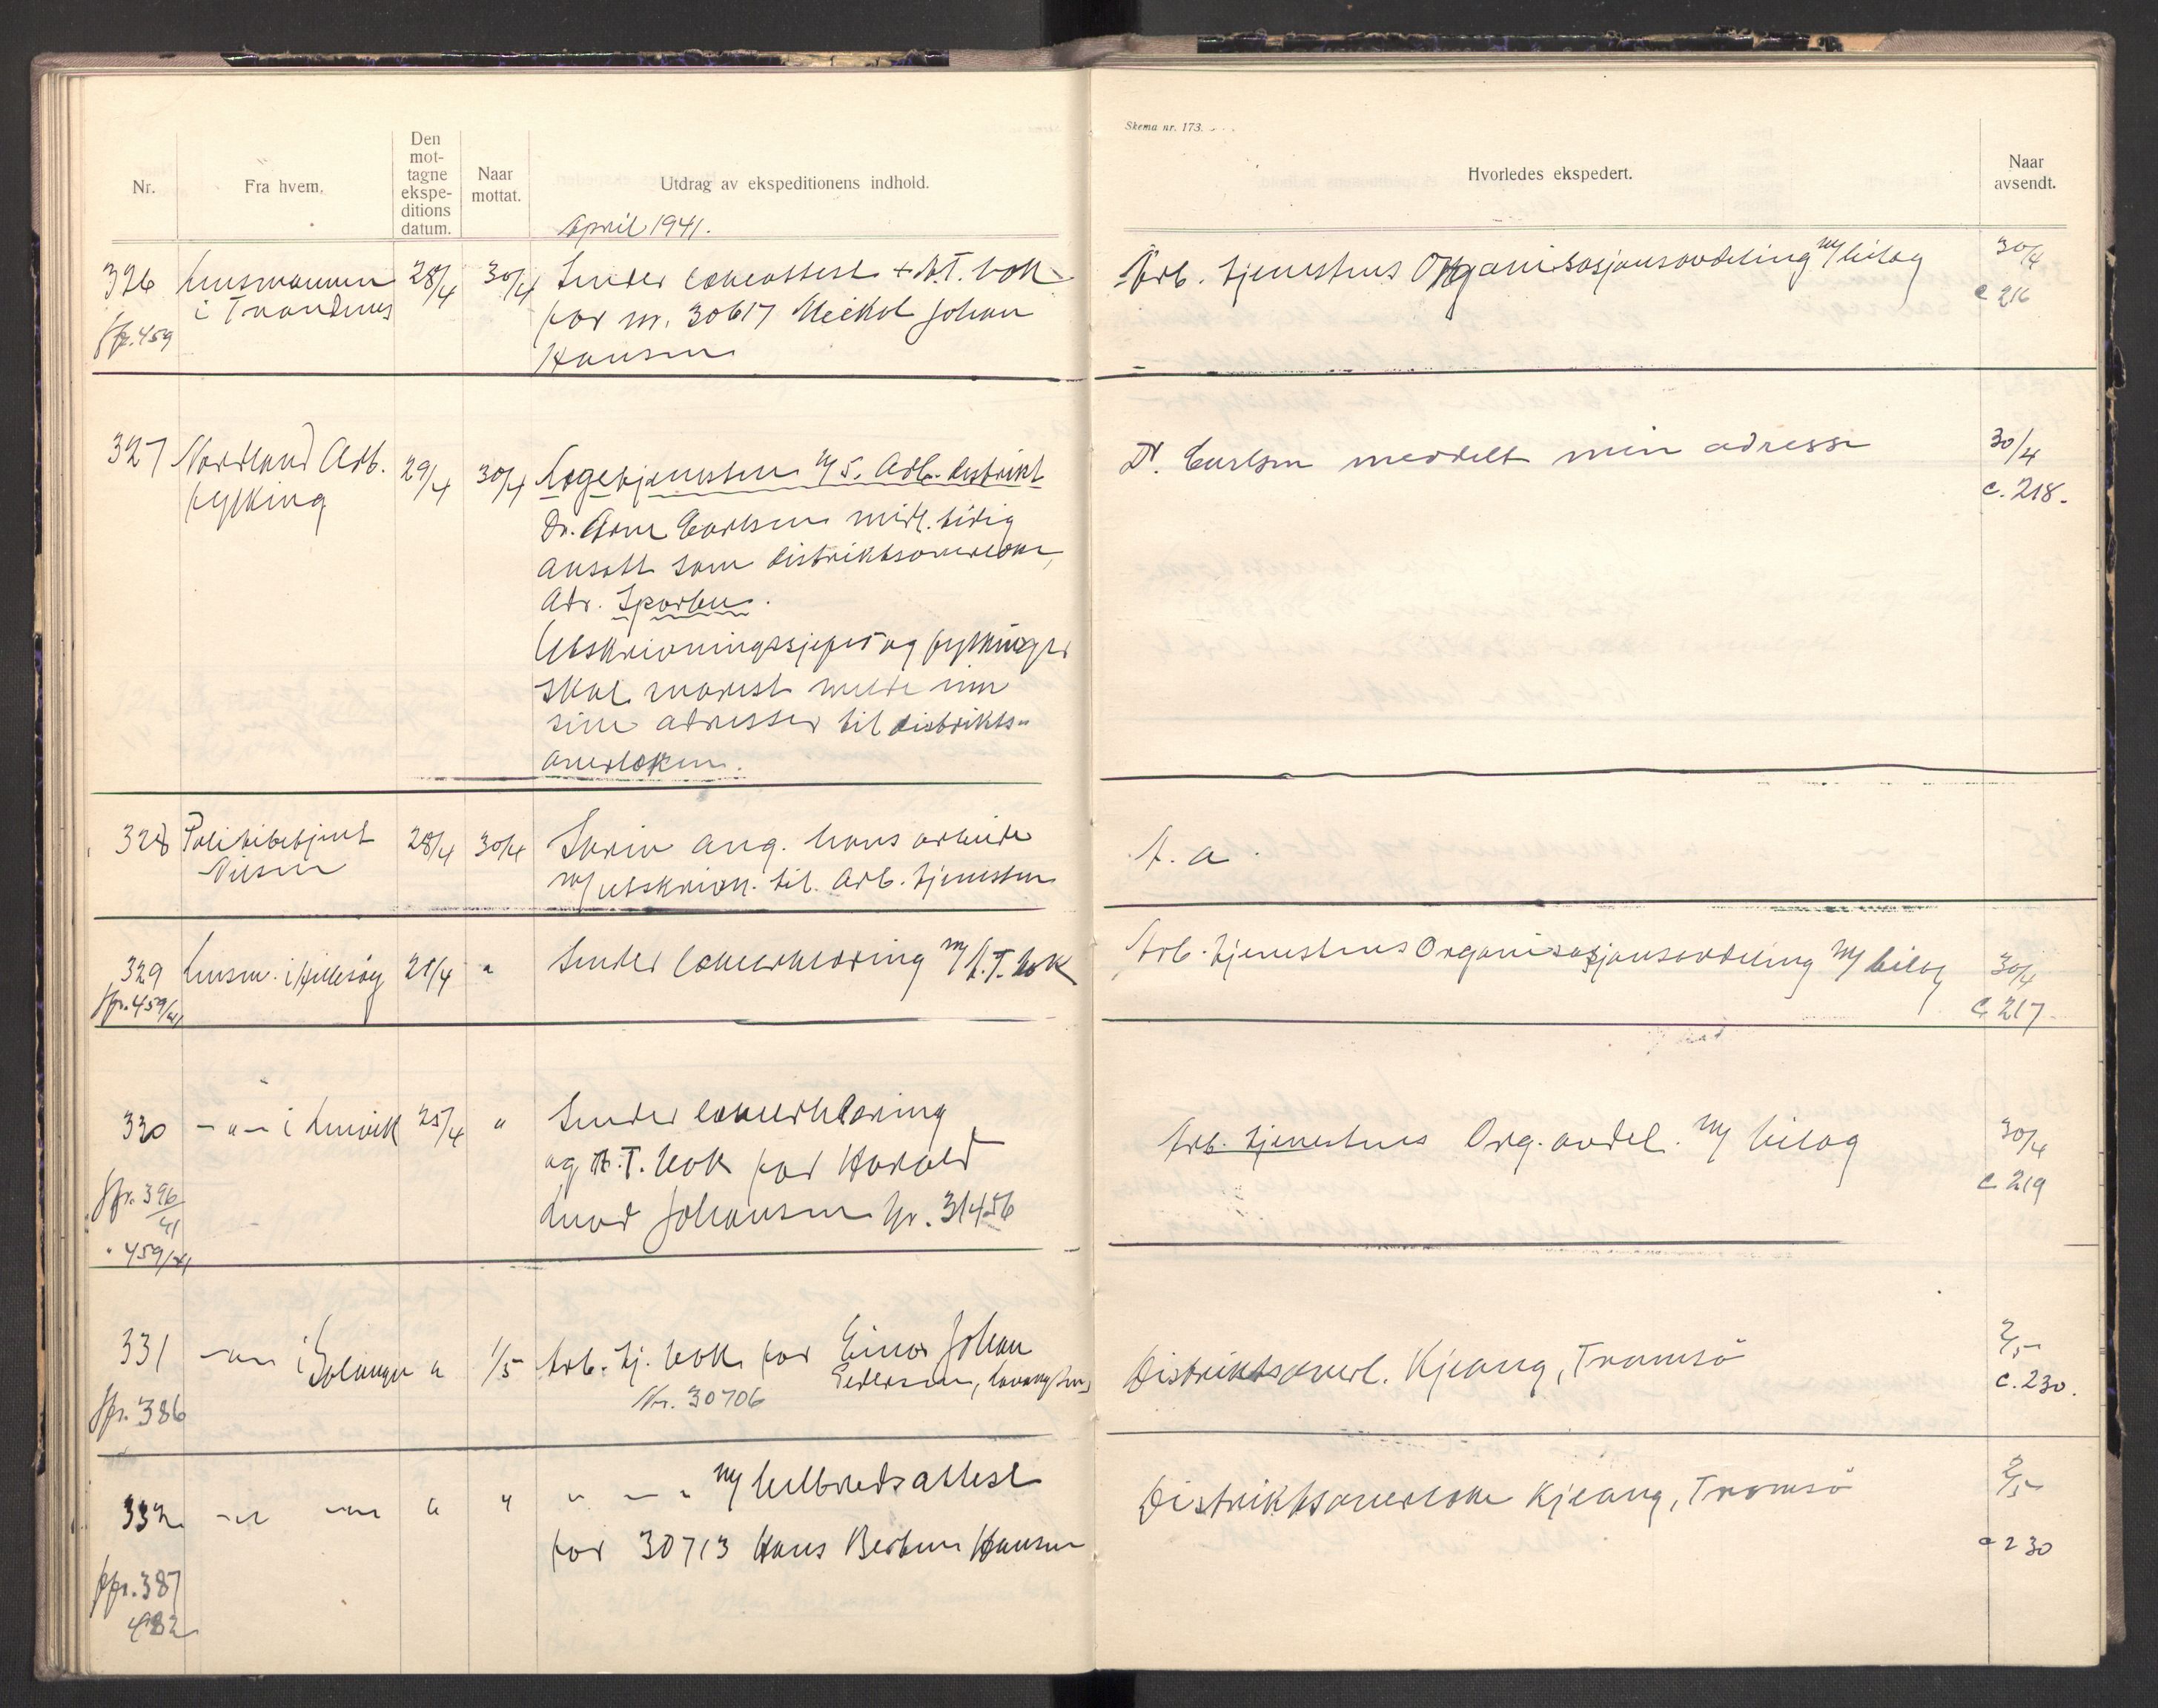 Skema nr. 173.
Nr.
Fra hvem.
Den
mot-
tagne
ekspe-
ditions
datum.
Naar
mottat.
Utdrag av ekspeditionens indhold.
Hvorledes ekspedert.
Naar
avsendt.
April 1941.
326 Lensmannen 28/4 30/4 Sender legeattest + A.T. bok
i Trondenes
for nr. 30617 Meikal Johan
Jfr. 459
Hansen
Arb. tjenestens Organisasjonsavdeling m/ bilag 30/4
c 216
327 Nordland Arb. 29/4 30/4 Legetjenesten m/ 5. Arb. distrikt
fylking
Dr. Arne Carlsen midl.tidig
ansatt som distriktsoverlege,
Adr. Sparbu.
Utskrivningssjefer og fylkinger
skal snarest melde inn
sine adresser til distrikts-
overlegen.
Dr. Carlsen meddelt min adresse 30/4
c. 218.
328 Politibetjent 28/4 30/4 Skriv ang. hans arbeide
Nilsen
m/ utskrivn. til Arb. tjenesten
A. a.
329 Lensm. i Hillesøy 28/4 " Sender legeerklæring m/ A.T. bok
Jfr. 459/41
Arb. tjenestens Organisasjonsavdeling m/ bilag 30/4
c 217
330 - " - i Lenvik 25/4 " Sender legeerklæring
og A.T. bok for Harald
Jfr. 396/41
Johansen Nr. 31456
" 459/41
Arb. tjenestens Org. avdel. m/ bilag 30/4
c. 219
331 - " - i Salangen " 1/5 Arb. tj. bok for Einar Johan
Pedersen,
Nr. 30706
Jfr. 386
Distriktsoverl. Kjeang, Tromsö 2/5
c. 230.
332 - " - - " - " " " - " m/ helbredsattest
for 30713 Hans Hansen
Jfr. 387
482
Distriktsoverlege Kjeang, Tromsö 2/5
c 230